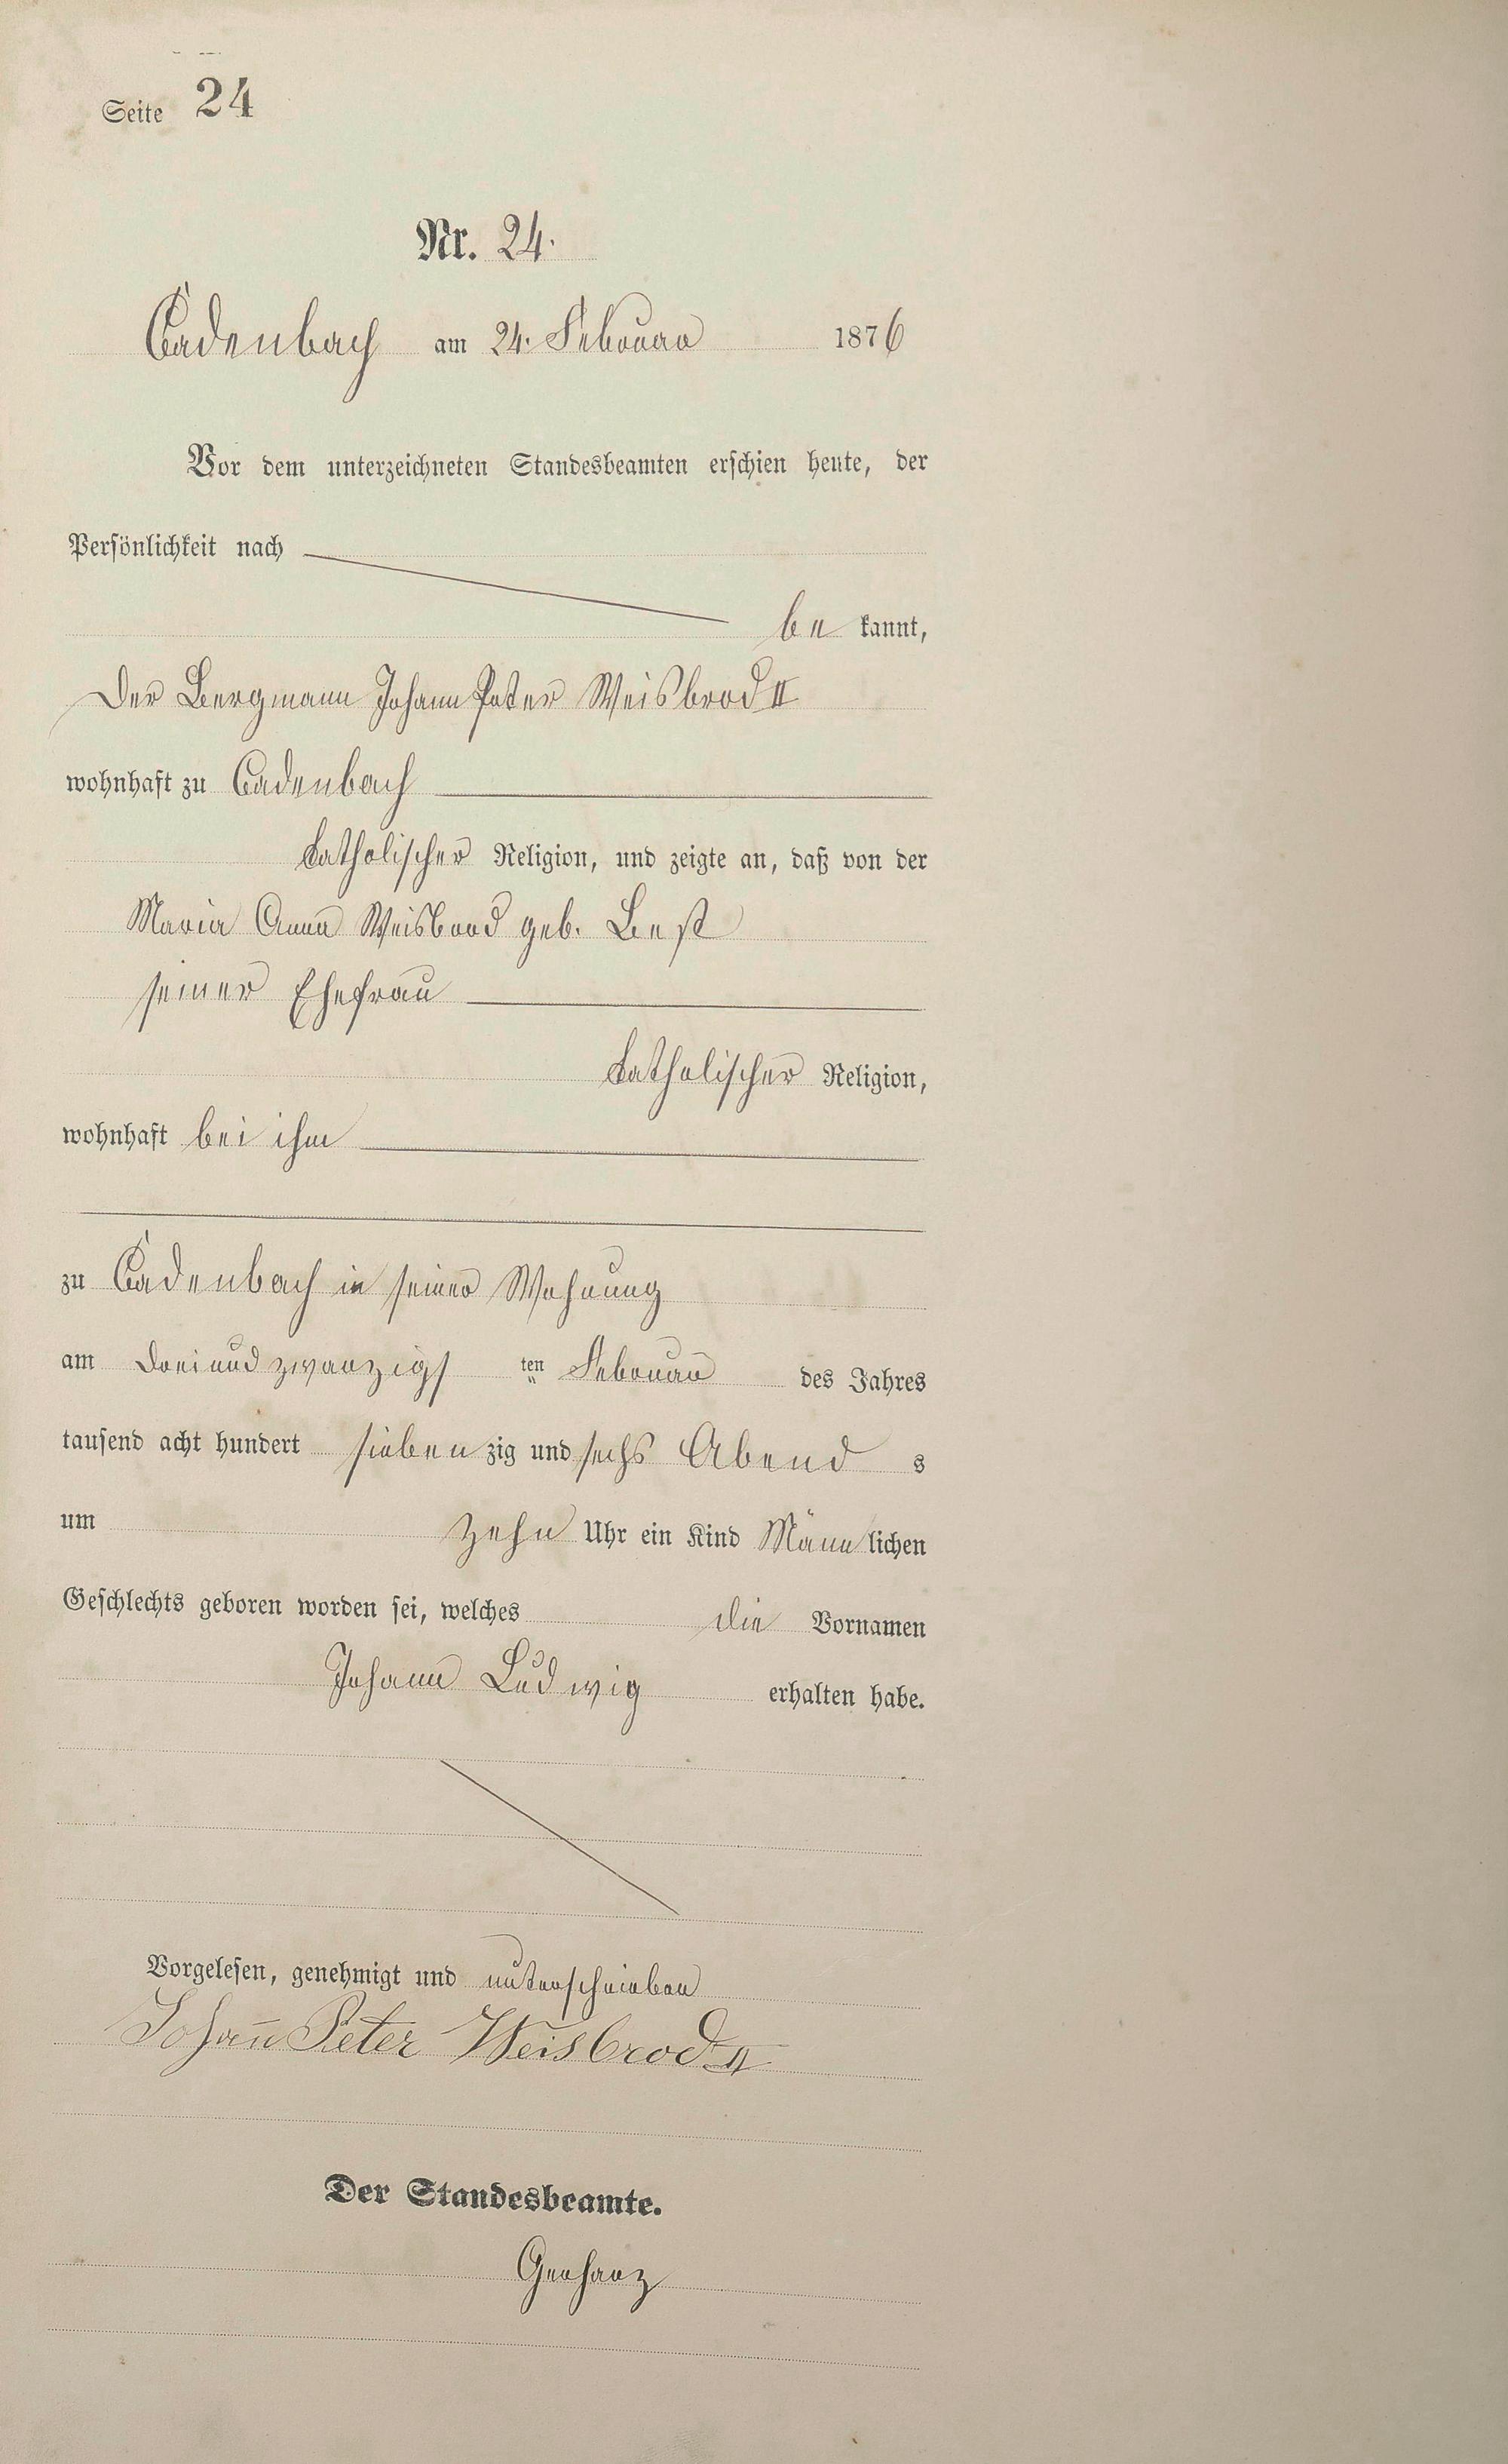 Seite 24
Nr. 24.
Cadenbach am 24. Februar 1876
Vor dem unterzeichneten Standesbeamten erschien heute, der
Persönlichkeit nach
be kannt,
Der Bergmann Johann Peter Weisbrod II
wohnhaft zu Cadenbach
katholischer Religion, und zeigte an, daß von der
Maria Anna Weisbrod geb. Best
seiner Ehefrau
katholischer Religion,
wohnhaft bei ihm
zu Cadenbach in seiner Wohnung
am dreiundzwanzigs ten Februar des Jahres
tausend acht hundert sieben zig und sechs Abend s
um zehn Uhr ein Kind Männ lichen
Geschlechts geboren worden sei, welches die Vornamen
Johann Ludwig erhalten habe.
Vorgelesen, genehmigt und unterschrieben
Johann Peter Weisbrod II
Der Standesbeamte.
Gerharz